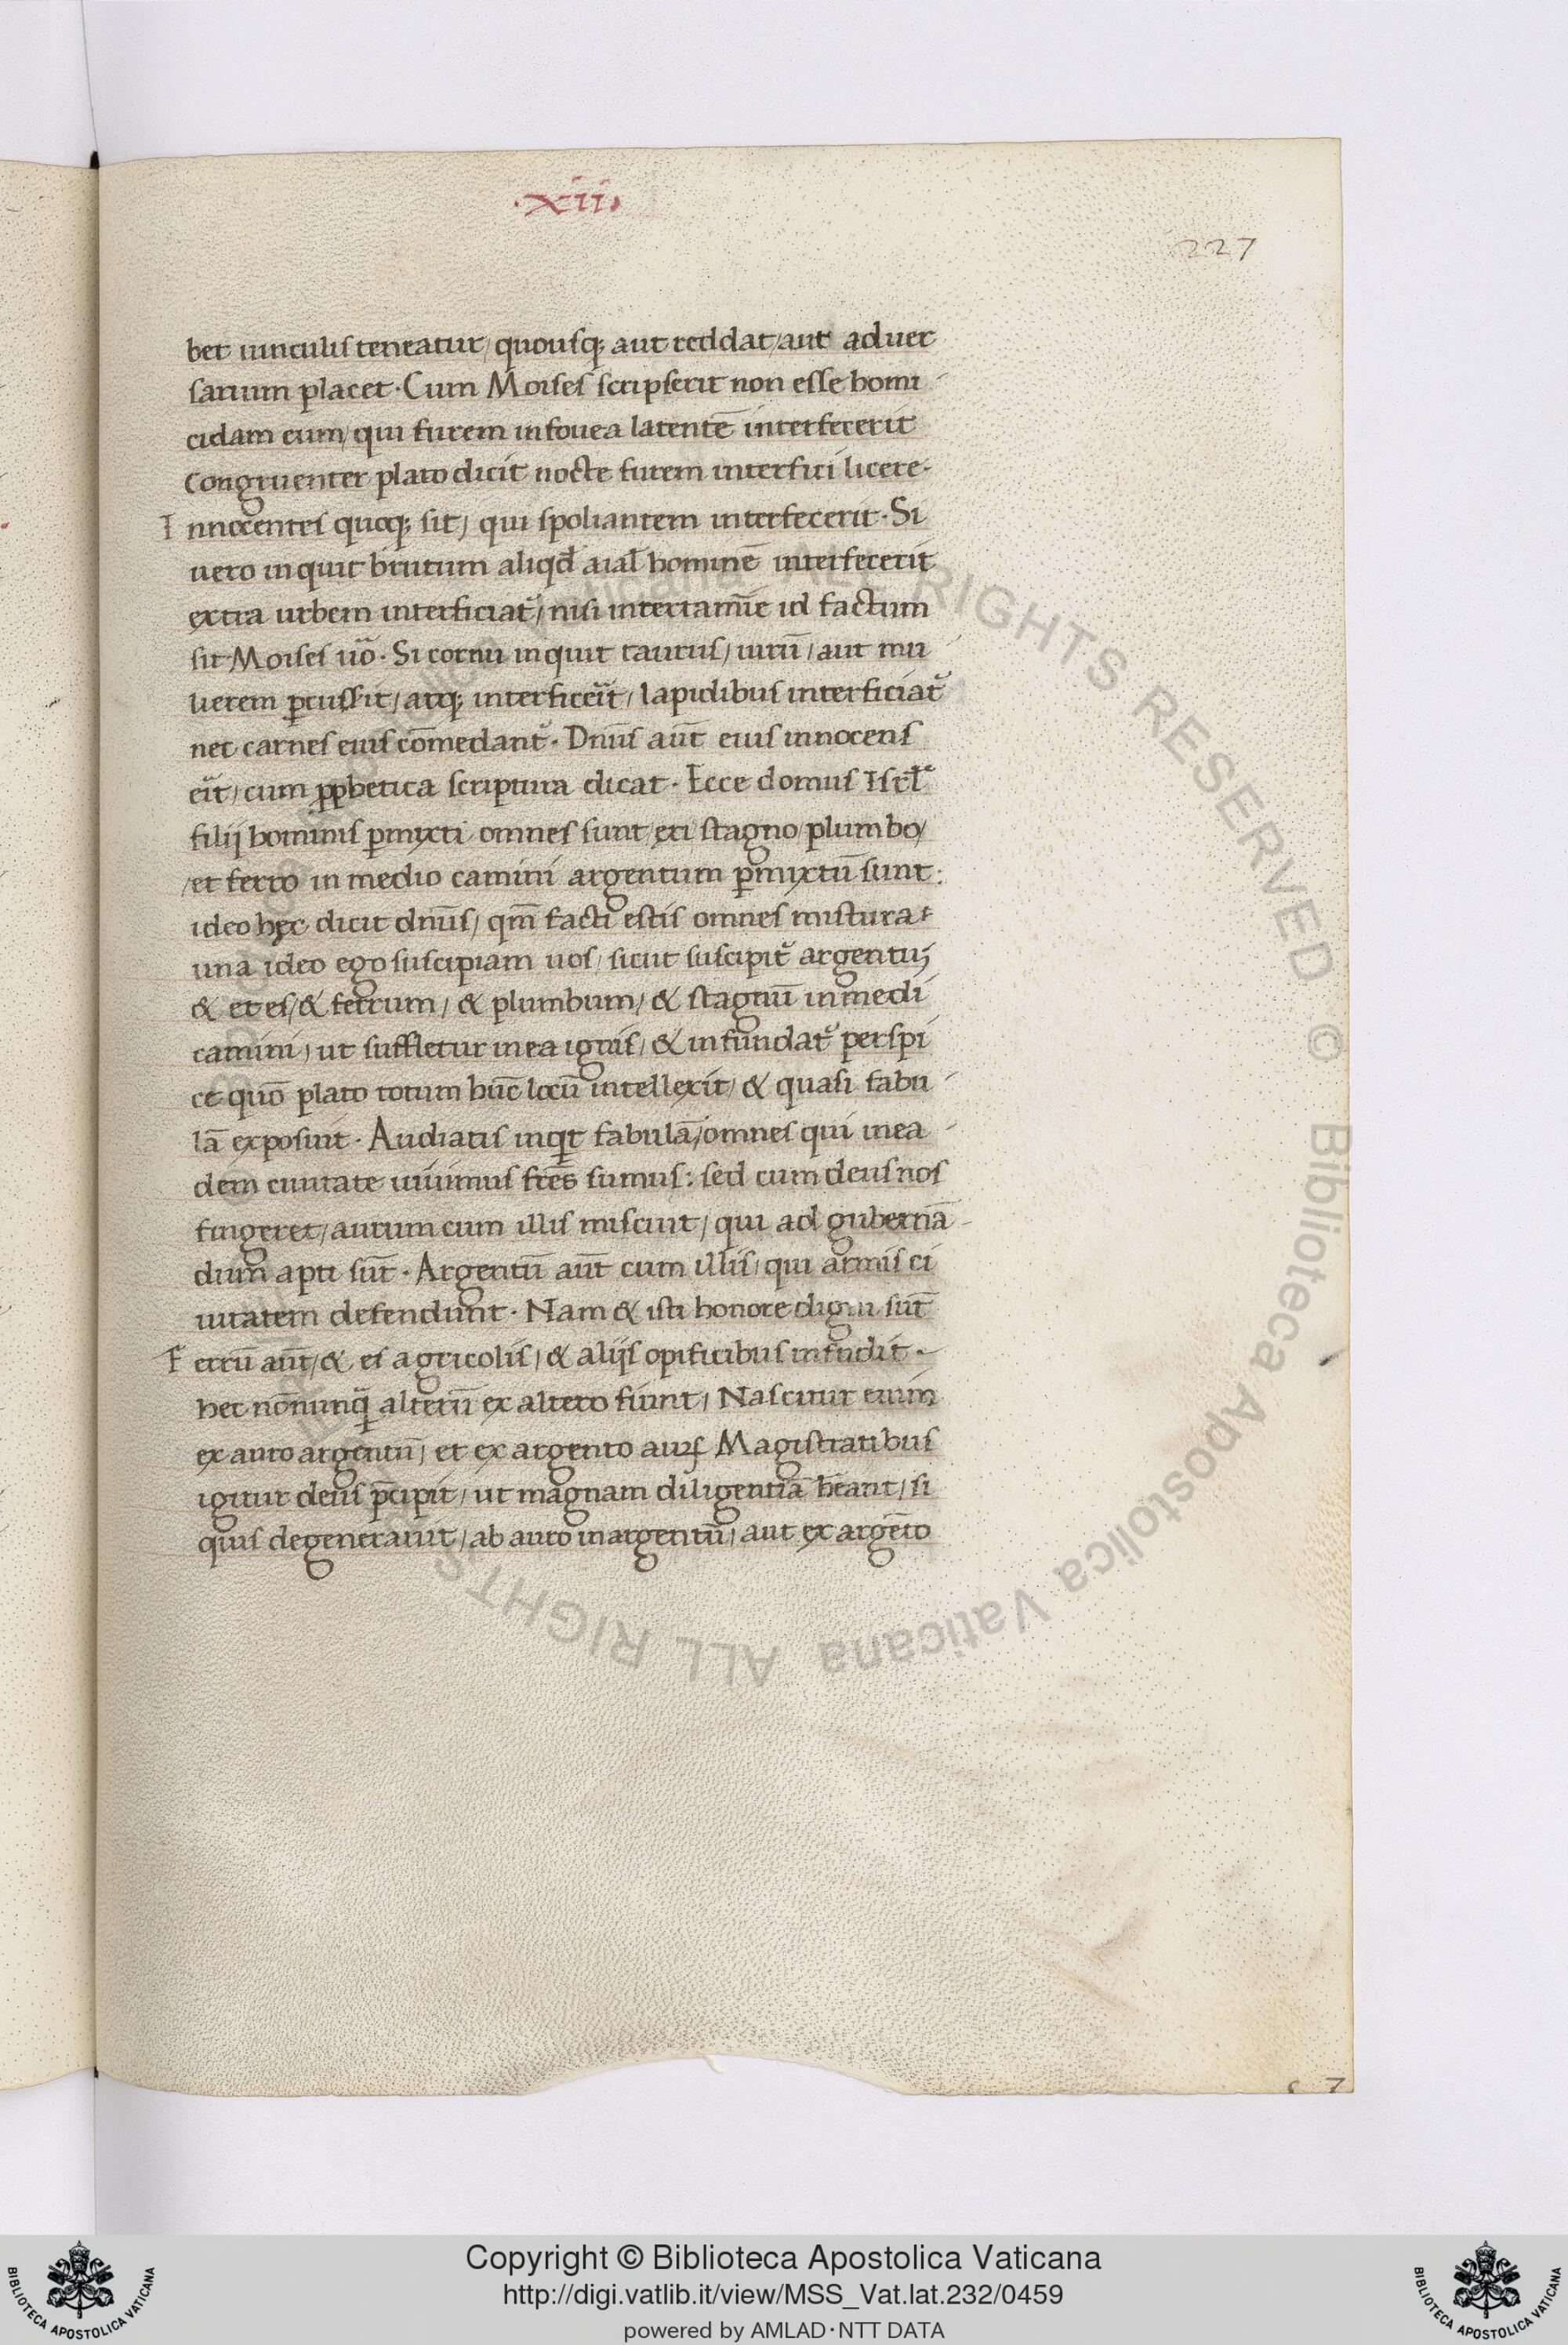 ·xii·
227
bet uinculis teneatur/ quousq; aut reddat/ aut aduer
sarium placet · Cum Moises scripserit non esse homi-
cidam eum/ qui furem in fouea latentē interfecerit
congruenter plato dicit nocte furem interfici licere·
Innocentes quoq; sit/ qui spoliantem interfecerit · Si
uero inquit brutum aliqd̄ aial̄ hominē interfecerit
extra urbem interficiat᷑/ nisi in certamīe id factum
sit Moises uo̅ · Si cornu inquit taurus/ uirū/ aut mu-
lierem ꝑcussit/ atq; interficeit/ lapidibus interficiat᷑
nec carnes eius com̄edant᷑ · Dn̄us aūt eius innocens
eit/ cum ꝓphetica scriptura dicat · Ecce domus Isrl̄
filij hominis ꝑmixti omnes sunt/ eri stagno/ plumbo/
/et ferro in medio camini argentum ꝑmixtū sunt:
ideo hęc dicit dn̄us/ qm̄ facti estis omnes mistura
una ideo ego suscipiam uos/ sicut suscipit᷑ argentuȝ
& et es/ & ferrum/ & plumbum/ & stagnū in medi
camini/ ut suffletur in ea ignis/ & infundat᷑ perspi
ce quō plato totum hūc locū intellexit/ & quasi fabu-
lā exposuit · Audiatis inqͥt fabulā/ omnes qui in ea-
dem ciuitate uiuimus fr̄es sumus: sed cum deus nos
fingeret/ aurum cum illis miscuit/ qui ad gubernā-
dum apti sūt · Argentū aūt cum illis/ qui armis ci
uitatem defendunt · Nam & isti honore digni sūt
Ferrū aūt/ & es agricolis/ & alijs opificibus infudit ·
hec nōnunqͣ̄ alterū ex altero fiunt/ Nascitur enim
ex auro argentū/ et ex argento auꝝ Magistratibus
igitur deus p̄cipit/ ut magnam diligentiā hēant/ si
quis degenerauit/ ab auro in argentū/ aut ex argēto
Copyright © Biblioteca Apostolica Vaticana
http://digi.vatlib.it/view/MSS_Vat.lat.232/0459
powered by AMLAD·NTT DATA
BIBLIOTECA APOSTOLICA VATICANA
BIBLIOTECA APOSTOLICA VATICANA